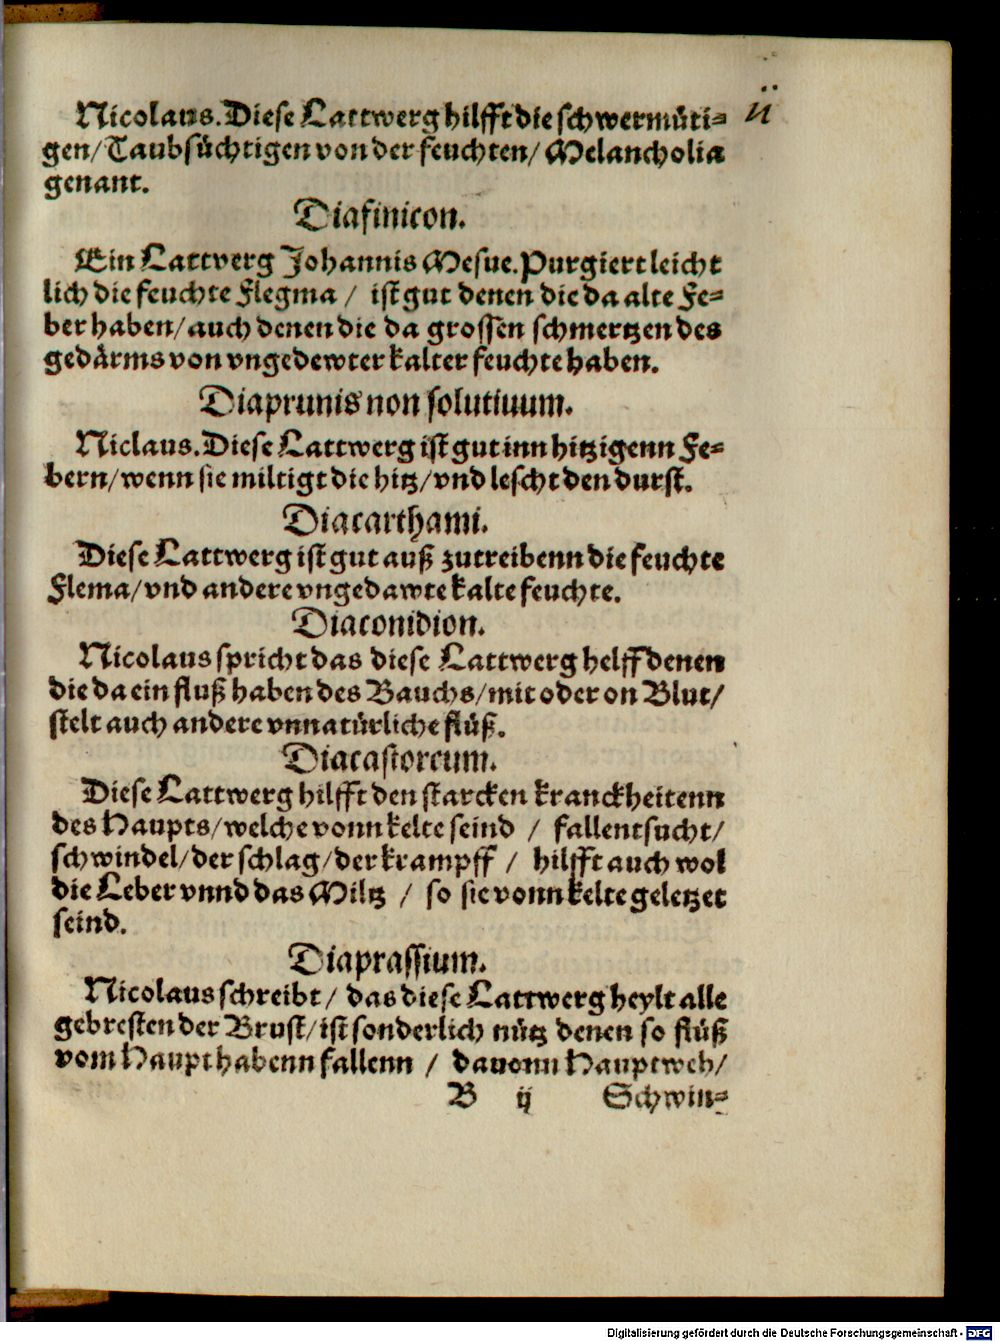 ıı
Nicolaus. Diese Lattwerg hilfft die schwermüti-
gen/ Taubsüchtigen von der feuchten/ Melancholia
genant.
Diafinicon.
Ein Lattverg Johannis Mesue. Purgiert leicht
lich die feuchte Flegma / ist gut denen die da alte Fe-
ber haben/ auch denen die da grossen schmertzen des
gedärms von vngedewter kalter feuchte haben.
Diaprunis non solutiuum.
Niclaus. Diese Lattwerg ist gut inn hitzigenn Fe-
bern/ wenn sie miltigt die hitz/ vnd lescht den durst.
Diacarthami.
Diese Lattwerg ist gut auß zutreibenn die feuchte
Flema/ vnd andere vngedawte kalte feuchte.
Diaconidion.
Nicolaus spricht das diese Lattwerg helff denen
die da ein fluß haben des Bauchs/ mit oder on Blut/
stelt auch andere vnnatürliche flüß.
Diacastoreum.
Diese Lattwerg hilfft den starcken kranckheitenn
des Haupts/ welche vonn kelte seind / fallentsucht/
schwindel/ der schlag/ der krampff / hilfft auch wol
die Leber vnnd das Miltz / so sie vonn kelte geletzet
seind.
Diaprassium.
Nicolaus schreibt/ das diese Lattwerg heylt alle
gebresten der Brust/ ist sonderlich nütz denen so flüß
vom Haupt habenn fallenn / dauonn Hauptweh/
B ij Schwin-
Digitalisierung gefördert durch die Deutsche Forschungsgemeinschaft - DFG